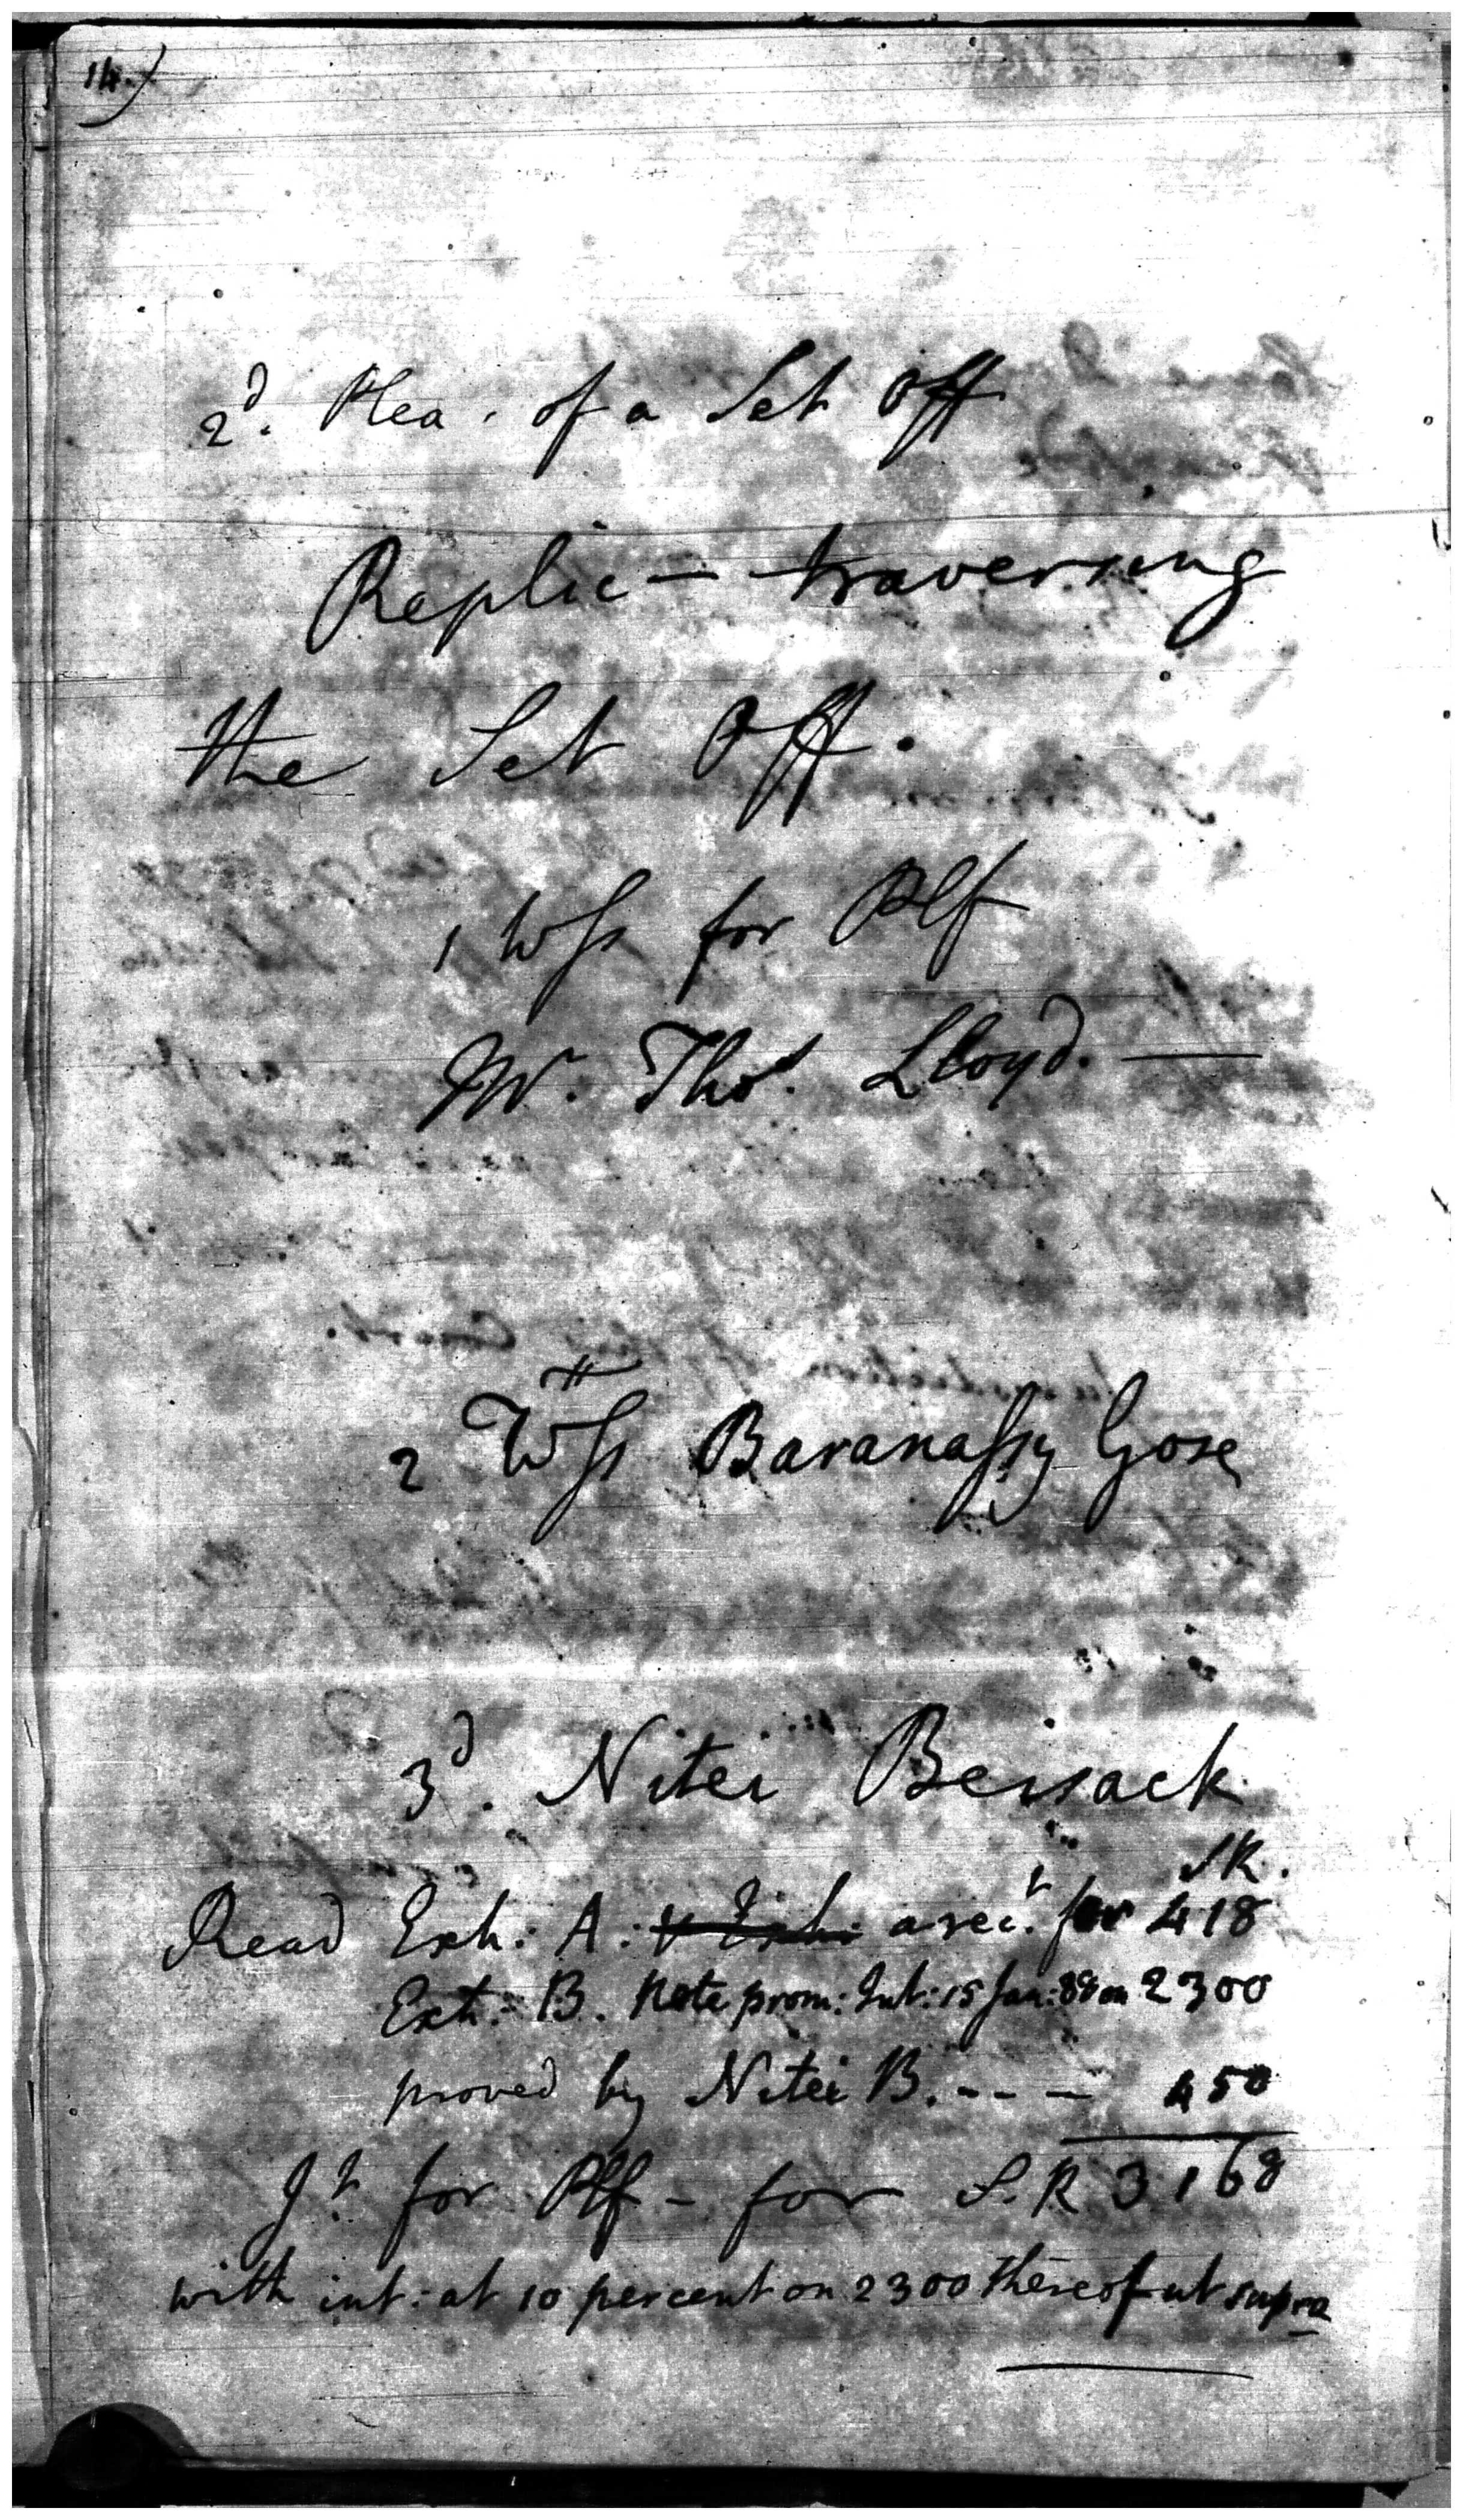 14.)
2d. Plea. of a Set Off
Replic — traversing
the Set Off.
1 Wss for Plf
Mr. Thos. Lloyd. —
2 Wss Baranassy Gose
3d. Nitei Beisack
SR.
Read Exh: A: a rect. for 418
Exh: B. Note prom: Int: 15 Jan: 88 on 2300
proved by Nitei B. - - - 450
Jt. for Plf - for S.R 3168
with int: at 10 percent on 2300 thereof ut supra